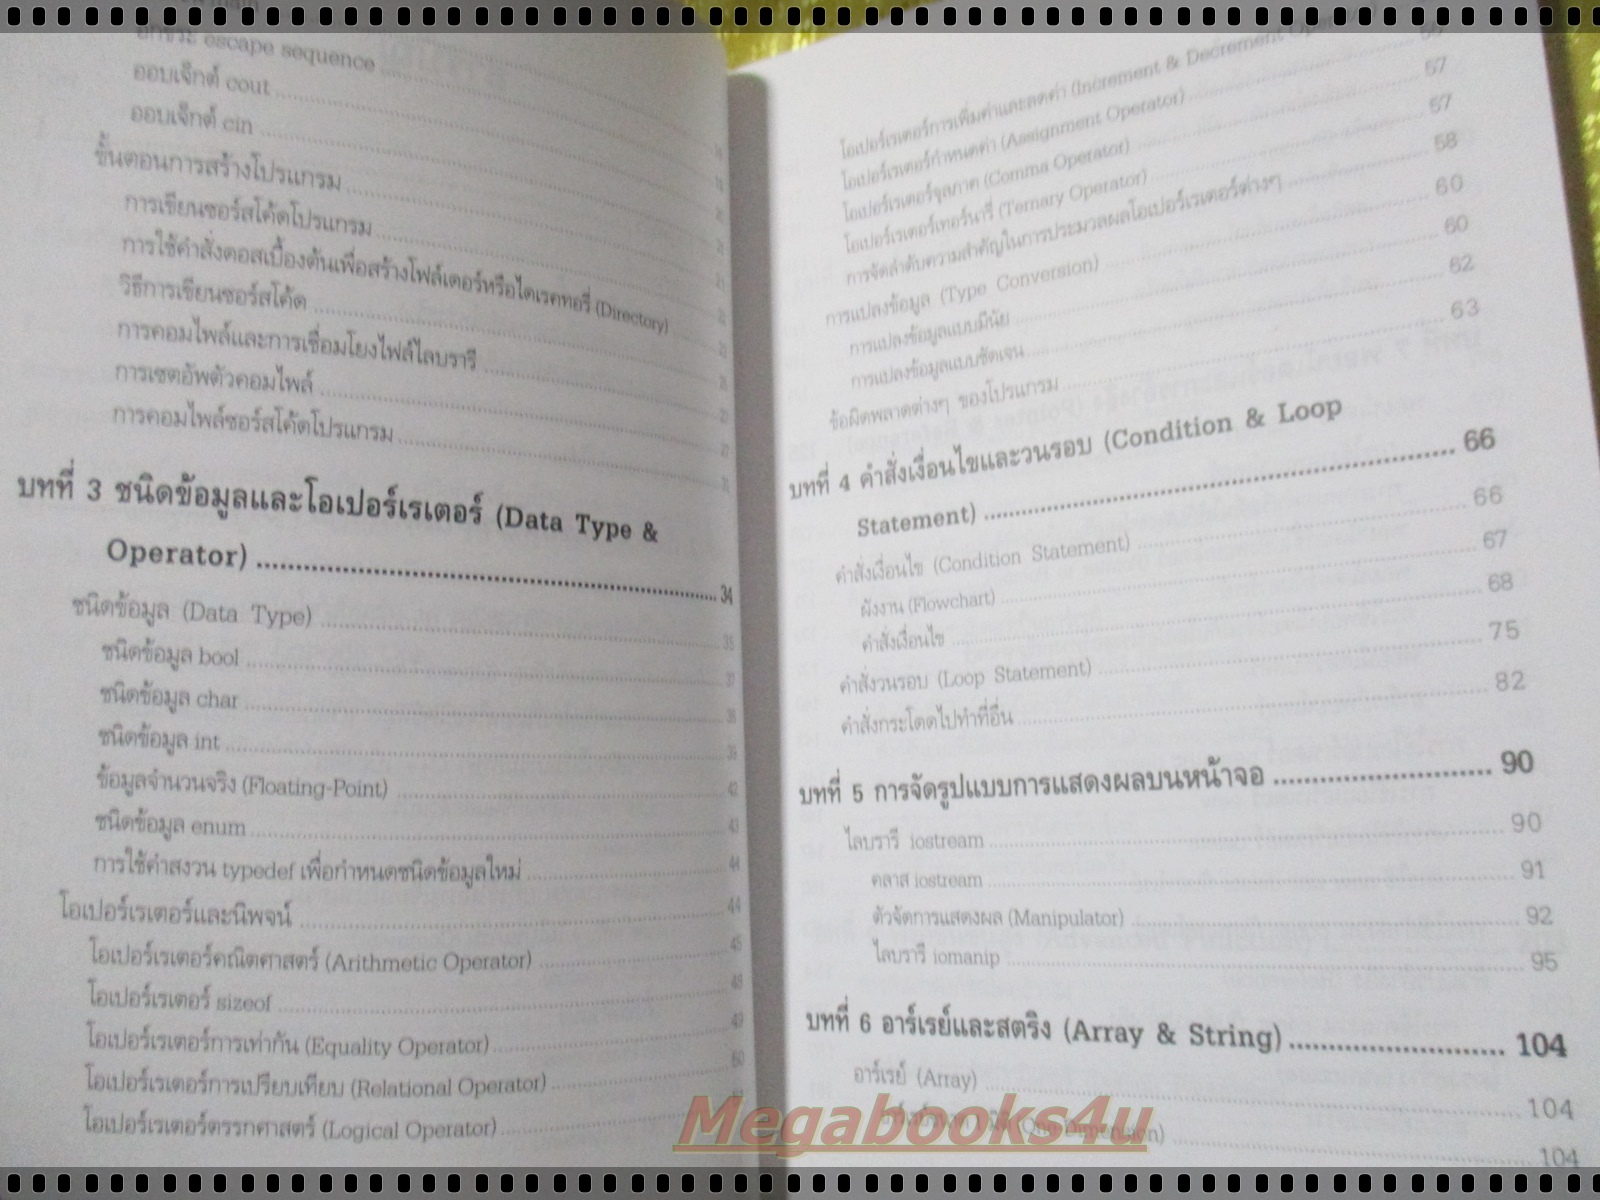 อักขระ escape sequence
ออบเจ็กต์ cout
ออบเจ็กต์ cin
ขั้นตอนการสร้างโปรแกรม
การเขียนซอร์สโค้ดโปรแกรม
การใช้คำสั่งดอสเบื้องต้นเพื่อสร้างโฟล์เดอร์หรือไดเรคทอรี่ (Directory)
วิธีการเขียนซอร์สโค้ด
การคอมไพล์และการเชื่อมโยงไฟล์ไลบรารี
การเซตอัพตัวคอมไพล์
การคอมไพล์ซอร์สโค้ดโปรแกรม
บทที่ 3 ชนิดข้อมูลและโอเปอร์เรเตอร์ (Data Type &
Operator) 34
ชนิดข้อมูล (Data Type) 35
ชนิดข้อมูล bool 37
ชนิดข้อมูล char
ชนิดข้อมูล int
ข้อมูลจำนวนจริง (Floating-Point) 42
ชนิดข้อมูล enum 43
การใช้คำสงวน typedef เพื่อกำหนดชนิดข้อมูลใหม่ 44
โอเปอร์เรเตอร์และนิพจน์ 44
โอเปอร์เรเตอร์คณิตศาสตร์ (Arithmetic Operator) 45
โอเปอร์เรเตอร์ sizeof 48
โอเปอร์เรเตอร์การเท่ากัน (Equality Operator) 49
โอเปอร์เรเตอร์การเปรียบเทียบ (Relational Operator) 50
โอเปอร์เรเตอร์ตรรกศาสตร์ (Logical Operator)
โอเปอร์เรเตอร์การเพิ่มค่าและลดค่า (Increment & Decrement Operator)
โอเปอร์เรเตอร์กำหนดค่า (Assignment Operator) 57
โอเปอร์เรเตอร์จุลภาค (Comma Operator) 57
โอเปอร์เรเตอร์เทอร์นารี่ (Ternary Operator) 58
การจัดลำดับความสำคัญในการประมวลผลโอเปอร์เรเตอร์ต่างๆ
การแปลงข้อมูล (Type Conversion) 60
การแปลงข้อมูลแบบมีนัย 60
การแปลงข้อมูลแบบชัดเจน 62
ข้อผิดพลาดต่างๆ ของโปรแกรม 63
บทที่ 4 คำสั่งเงื่อนไขและวนรอบ (Condition & Loop
Statement) 66
คำสั่งเงื่อนไข (Condition Statement) 66
ผังงาน (Flowchart) 67
คำสั่งเงื่อนไข 68
คำสั่งวนรอบ (Loop Statement) 75
คำสั่งกระโดดไปทำที่อื่น 82
บทที่ 5 การจัดรูปแบบการแสดงผลบนหน้าจอ 90
ไลบรารี iostream 90
คลาส iostream 91
ตัวจัดการแสดงผล (Manipulator) 92
ไลบรารี iomanip 95
บทที่ 6 อาร์เรย์และสตริง (Array & String) 104
อาร์เรย์ (Array) 104
(One Dimension) 104
Megabooks4u